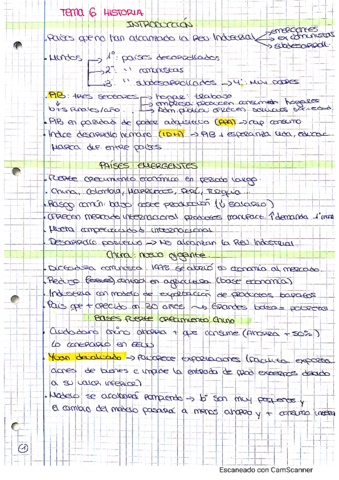 TEMA 6 HISTORIA
INTRODUCCIÓN
· Países que no han alcanzado la Rev. Industrial → emergentes
→ ex comunistas
→ subdesarroll.
· Mundos → 1º: países desarrollados
→ 2º: " comunistas
→ 3º: " subdesarrollados → 4º: muy pobres
· PIB: tres sectores → hogares trabajo
→ empresa producen consumen hogares
bys finales/año
· PIB en paridad de poder adquisitivo (PPA) → cap consumo
· Indice desarrollo humano (IDH) → PIB + esperanza vida, educac.
Marca dif entre países
PAÍSES EMERGENTES
· Fuerte crecimiento económico en periodo largo
· China, Colombia, Marruecos, Perú, Turquía
· Rasgo común: bajo coste producción (↓ salario)
· Ofrecen mercado internacional productos manufact. ↑ demanda
· Mucha competitividad internacional
· Desarrollo positivo → No alcanzan la Rev. Industrial
China: nuevo gigante
· Dictadura comunista. 1978 se abrió su economía al mercado.
· Redujo pobreza en agricultura (base economía)
· Industria con modelo de exportación de productos baratos
· País que + crecido en 30 años → Grandes bolsas pobreza.
Bases fuerte crecimiento chino
· Ciudadano chino ahorra + que consume (Ahorra + 50%)
(lo contrario en EEUU)
· Yuan devaluado → Favorece exportaciones (facilita exporta
ciones de bienes e impide la entrada de prod extranjeros debido
a su valor inferior)
· Modelo se acabará rompiendo → bº son muy pequeños y
el cambio del modelo pasará a menos ahorro y + consumo
1
Escaneado con CamScanner